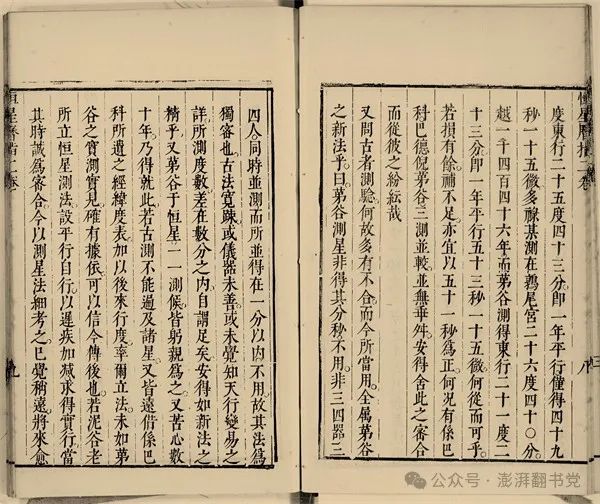 恒星曆指二卷
度東行二十五度四十三分即一年平行僅得四十九
秒一十五微多祿某測在鶉尾宮二十六度四十〇分
越一千四百四十六年而第谷測得東行二十一度二
十三分即一年平行五十三秒一十五微何從而可乎
若損有餘補不足亦宜以五十一秒為正何況有依巴
科巴德倪第谷三測並較並無乖舛安得舍此之審合
而從彼之紛紜哉
又問古者測驗何故多有不合而今所當用全屬第谷
之新法乎曰第谷測星非得其分秒不用非三四器三
八
四人同時並測而所並得在一分以內不用故其法為
獨審也古法寬踈或儀器未善或未覺知天行變易之
詳所測度數差在數分之內自謂足矣安得如新法之
精乎又第谷于恒星一一測候皆躬親為之又苦心數
十年乃得就此若古測不能過及諸星又皆遠借依巴
科所遺之經緯度表加以後來行度率爾立法未如第
谷之實測實見確有據依可以信今傳後也若泥谷老
所立恒星測法設平行自行以遲疾加減求得實行當
其時誠為審合今以測星法細考之已覺稍遠將來愈
恒星曆指二卷
九
公众号·澎湃翻书党